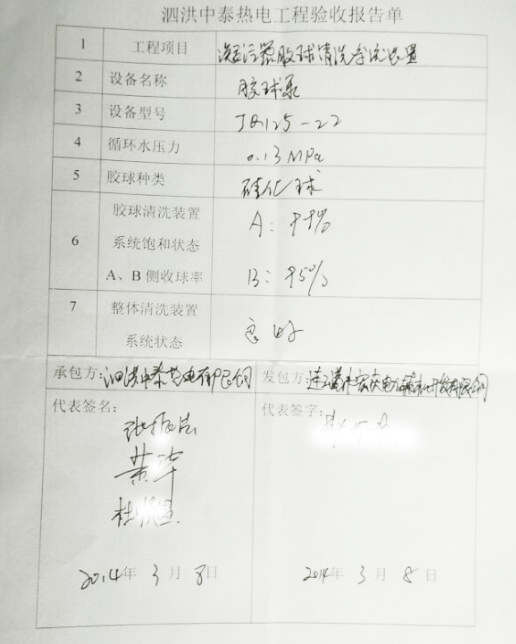 泗洪中泰热电工程验收报告单
1 工程项目 凝污器胶球清洗系统装置
2 设备名称 胶球泵
3 设备型号 JQ125-22
4 循环水压力 0.13MPa
5 胶球种类 硅化球
胶球清洗装置 A: 99%
6 系统饱和状态
A、B侧收球率 B: 95%
7 整体清洗装置
系统状态 良好
承包方: 泗洪中泰热电有限公司 发包方:
代表签名: 代表签字:
黄华
2014年3月8日 2014年3月8日